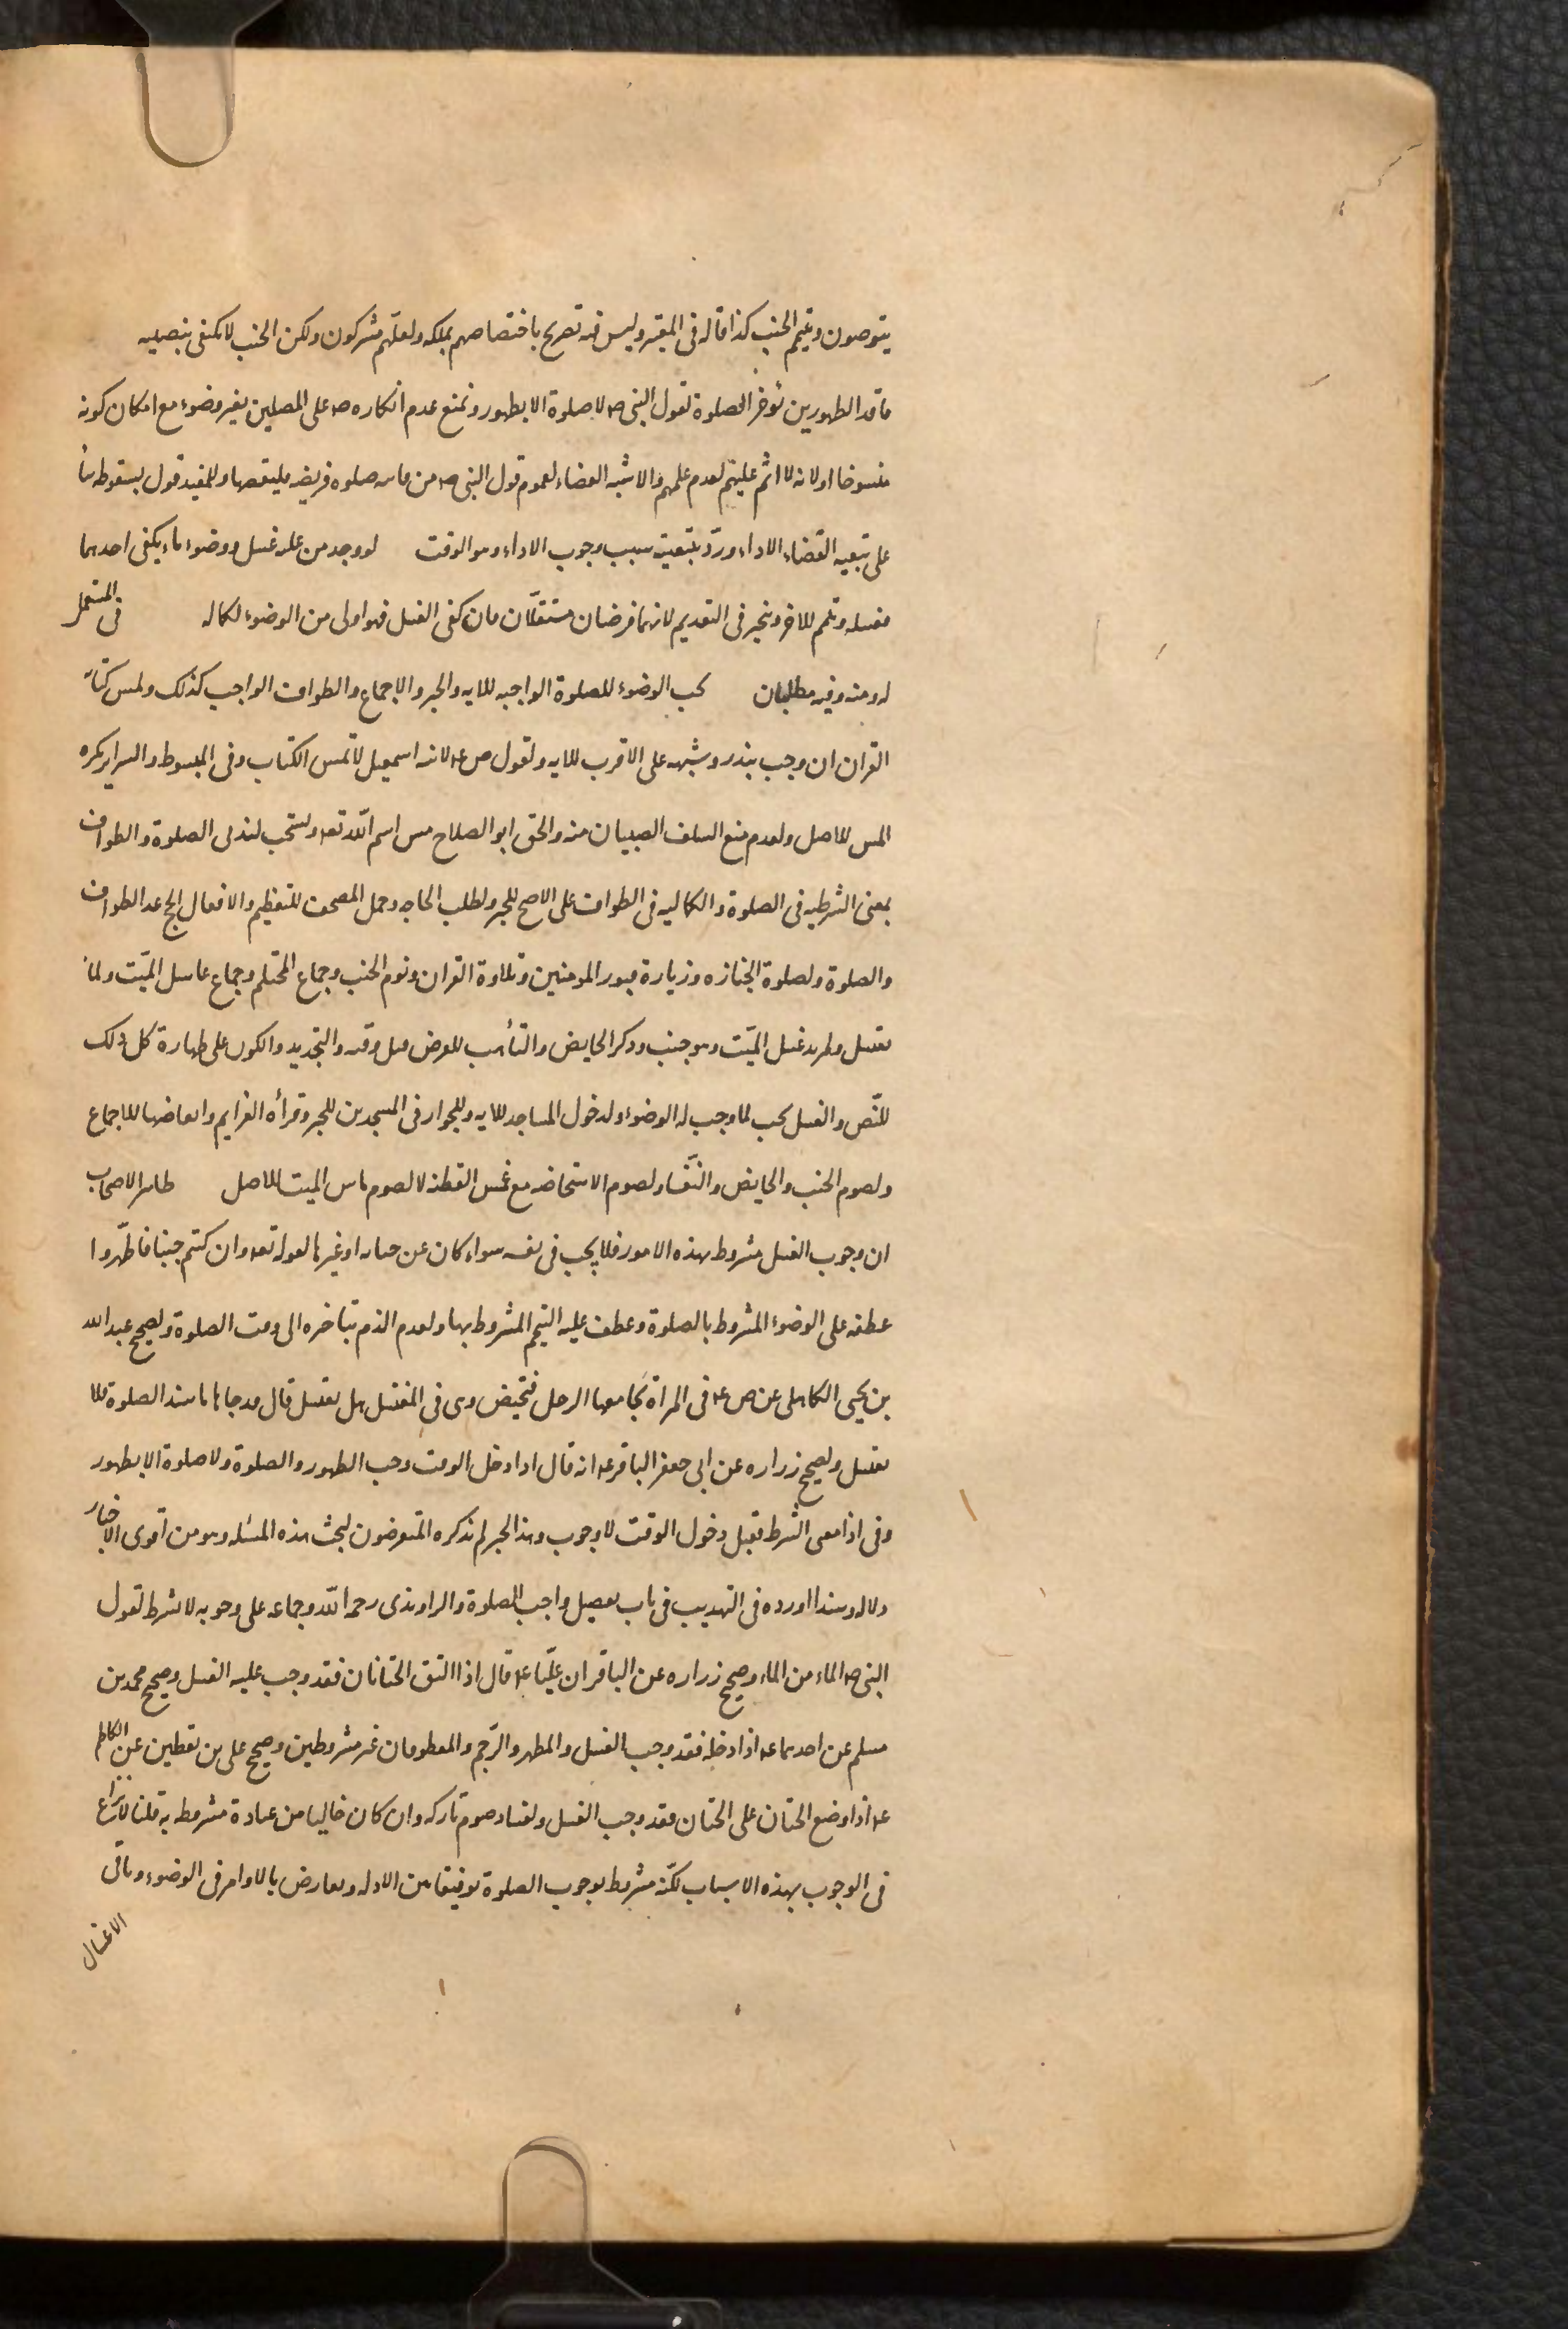 يتوضون وتيمم الجنب كذا قاله فى المعتبر وليس فيه تصريح باختصاصهم بملكه ولعلهم مشركون ولكن الجنب لا يكتفى بنصيبه
فاقد الطهورين يؤخر الصلوة لقول النبى ص لا صلوة الا بطهور ونمنع عدم انكاره ص على المصلين بغير وضوء مع امكان كونه
منسوخا او لانه لا اثم عليهم لعدم علمهم والاشبه القضاء لعموم قول النبى ص من فاته صلوة فريضة فليقضها وللمفيد قول بسقوطه بناً
على تبعيه القضاء الاداء ورد بتبعيته سبب وجوب الاداء وهو الوقت لو وجد من عليه غسل ووضوء ماء يكفى احدهما
فغسله وتيمم للاخر ويتخير فى التقديم لانهما فرضان مستقلان فان كفى الغسل فهو اولى من الوضوء لكماله فى المستعمل
له ومنه وفيه مطلبان يجب الوضوء للصلوة الواجبه للايه والخبر والاجماع والطواف الواجب كذلك ولمس كتابة
القران ان وجب بنذر وشبهه على الاقرب للايه ولقول ص ع لابنه اسمعيل لا تمس الكتاب وفى المبسوط والسراير يكره
المس للاصل ولعدم منع السلف الصبيان منه والحق ابو الصلاح مس اسم الله تعه ويستحب لندبى الصلوة والطواف
بمعنى الشرطيه فى الصلوة والكماليه فى الطواف على الاصح للخبر ولطلب الحاجه وحمل المصحف للتعظيم والافعال الحج عدا الطواف
والصلوة ولصلوة الجنازه وزيارة قبور المومنين وتلاوة القران ونوم الجنب وجماع المحتلم وجماع غاسل الميّت ولما
يغتسل ولمريد غسل الميّت وهو جنب وذكر الحايض والتأهب للفرض قبل وقته والتجديد والكون على طهارة كل ذلك
للنّص والغسل يجب لما وجب له الوضوء ولدخول المساجد للايه وللجواز فى المسجدين للخبر وقرأة العزايم وابعاضها للاجماع
ولصوم الجنب والحايض والنفساء ولصوم الاستحاضه مع غمس القطنه لا لصوم ماس الميت للاصل ظاهر الاصحاب
ان وجوب الغسل مشروط بهذه الامور فلا يجب فى نفسه سواء كان عن جنابه او غيرها لقوله تعه وان كنتم جنبا فاطّهروا
عطفه على الوضوء المشروط بالصلوة وعطف عليه التيمم المشروط بها ولعدم الذم بتاخره الى وقت الصلوة ولصحيح عبد الله
بن يحيى الكاهلى عن ص ع فى المراة يجامعها الرجل فتحيض وهى فى المغتسل هل يغتسل قال قد جاءها ما يفسد الصلوة فلا
يغتسل ولصحيح زراره عن ابى جعفر الباقر ع انه قال اذا دخل الوقت وجب الطهور والصلوة ولا صلوة الا بطهور
وفى اذا معنى الشرط فقبل دخول الوقت لا وجوب وهذا الخبر لم يذكره المتعرضون لبحث هذه المسئله وهو من اقوى الاخبار
دلاله وسندا اورده فى التهذيب فى باب تفصيل واجب الصلوة والراوندى رحمه الله وجماعه على وجوبه لا بشرط لقول
النبى ص الماء من الماء وصحيح زراره عن الباقر ان عليّا ع قال اذا التقى الختانان فقد وجب عليه الغسل وصحيح محمد بن
مسلم عن احدهما ع اذا ادخله فقد وجب الغسل والمهر والرّجم والمعطوفان غير مشروطين وصحيح على بن يقطين عن الكاظم
ع اذا وضع الختان على الختان فقد وجب الغسل ولفساد صوم تاركه وان كان خاليا من عبادة مشروطه به قلنا لا نزاع
فى الوجوب بهذه الاسباب لكنّه مشروط بوجوب الصلوة توفيقا بين الادله ومعارض بالاوامر فى الوضوء وباقى
الاغسال